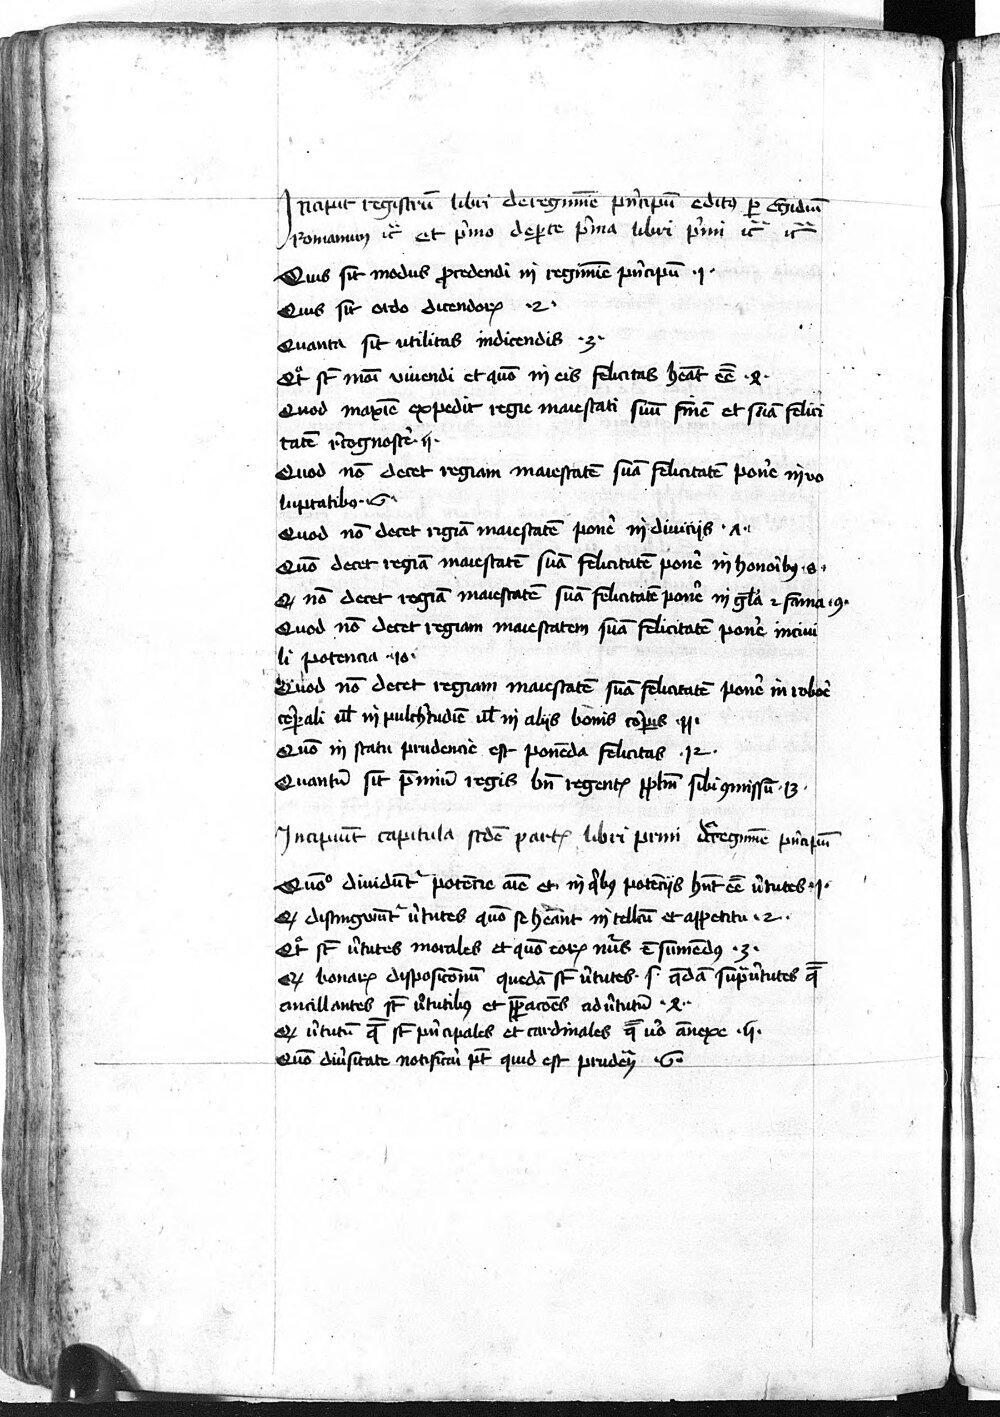 Incipit registrū libri de regimīe pⁱncipū editꝫ per Egidiū
Romanum ic̄ et pⁱmo de pͣrte pⁱma libri pⁱmi ic̄ ic̄
Quis sit modus procedendi in regimīe pⁱncipū ·1·
Quis sit ordo dicendoꝝ ·2·
Quanta sit utilitas in dicendis ·3·
Qͦt st̄ modi viuendi et quō in eis felicitas heāt eē ·4·
Quod maxīe expedit regie maiestati suū finē et suā felici
tatē recognoscē ·5·
Quod nō decet regiam maiestatē suā felicitatē ponē in vo
luptatibꝫ ·6·
Quod nō decet regiā maiestatē ponē in diuicijs ·7·
Quō decet regiā maiestatē suā felicitatē ponē in honoribꝫ ·8·
Qꝫ nō decet regiā maiestatē suā felicitatē ponē in gl̄ia ⁊ fama ·9·
Quod nō decet regiam maiestatem suā felicitatē ponē in ciui
li potencia ·10·
Quod nō decet regiam maiestatē suā felicitatē ponē in roboē
corꝑali ul̄ in pulchͥtudīe ul̄ in alijs bonis corꝑis ·11·
Quō in statu prudencie est ponēda felicitas ·12·
Quantū sit p̄miū regis bn̄ regentꝭ ppl̄m sibi ꝯmissū ·13·
Incipiūt capitula scd̄e partꝭ libri primi de regimīe pⁱncipū
Quōº diuidūt᷑ potēcie aīe et in qⁱbꝫ potēcijs hn̄t eē vⁱtutes ·1·
Qꝫ distinguūt᷑ vⁱtutes quō se heānt in tellc̄u et appetitu ·2·
Qͦt st̄ vⁱtutes morales et quō eoꝝ nu̅s ē sumēdꝰ ·3·
Qꝫ bonaꝝ disposicōnū quedā st̄ vⁱtutes · s· qͣdā supͣ vⁱtutes q̄
ancillantes st̄ vⁱtutibꝫ et p̄paͣcōes ad vⁱtutū ·4·
Qꝫ vⁱtutū q̄ st̄ pⁱncipales et cardinales q̄ vͦo ānexe ·5·
Quō diuⁱsitate notificari pt̄ quid est prudēc̄ ·6·